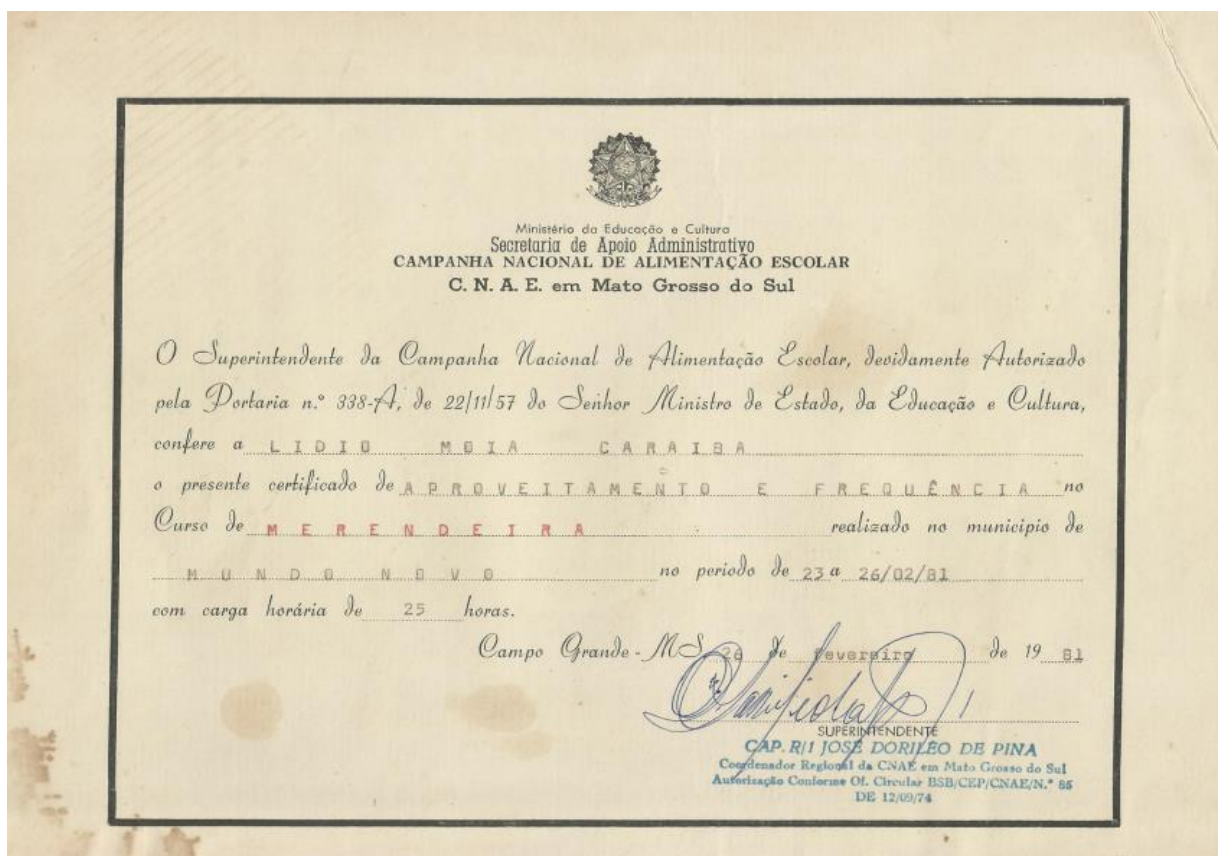 Ministério da Educação e Cultura
Secretaria de Apoio Administrativo
CAMPANHA NACIONAL DE ALIMENTAÇÃO ESCOLAR
C. N. A. E. em Mato Grosso do Sul
O Superintendente da Campanha Nacional de Alimentação Escolar, devidamente Autorizado
pela Portaria n.º 338-A, de 22/11/57 do Senhor Ministro de Estado, da Educação e Cultura,
confere a LIDIO MOIA CARAIBA
o presente certificado de APROVEITAMENTO E FREQUÊNCIA no
Curso de MERENDEIRA realizado no município de
MUNDO NOVO no período de 23 a 26/02/81
com carga horária de 25 horas.
Campo Grande - MS 26 de fevereiro de 19 81
SUPERINTENDENTE
CAP. R/1 JOSÉ DORILÊO DE PINA
Coordenador Regional da CNAE em Mato Grosso do Sul
Autorização Conforme Of. Circular BSB/CEP/CNAE/N.º 85
DE 12/09/74